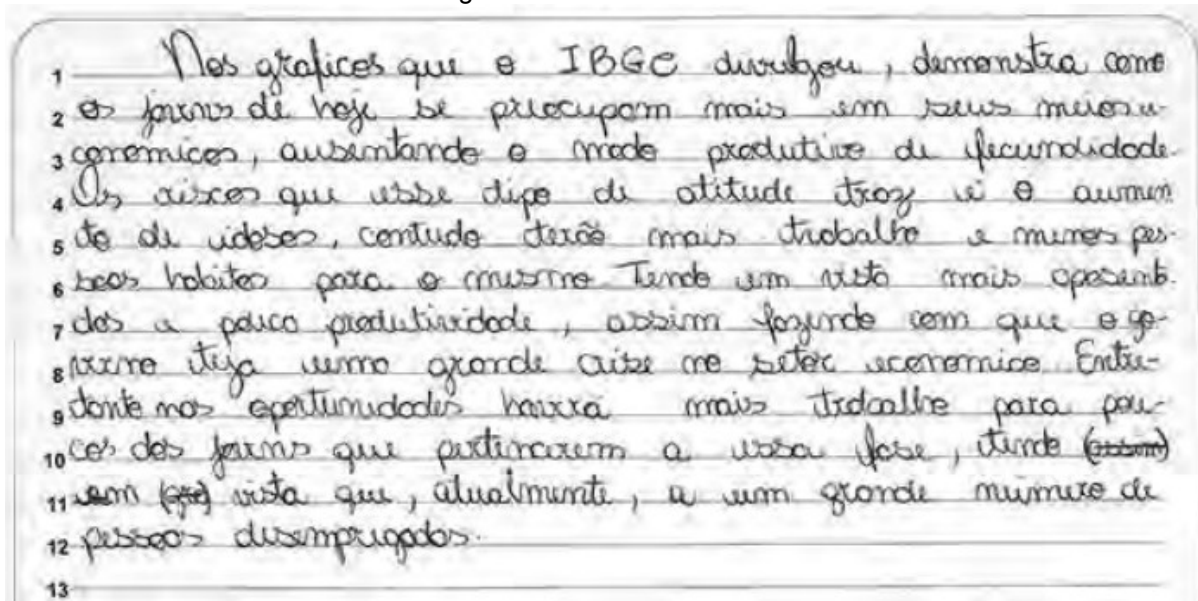 1 Nos graficos que o IBGE divulgou, demonstra como
2 os jovens de hoje se preocupam mais em seus meios e-
3 conomicos, ausentando o modo produtivo de fecundidade.
4 Os riscos que esse tipo de atitude traz é o aumen
5 to de idosos, contudo terão mais trabalho e menos pes-
6 soas habitas para o mesmo Tendo em vista mais aposent.
7 dos e pouca produtividade, assim fazendo com que o go-
8 verno teja uma grande crise no setor economico Entre-
9 tanto nas oportunidades havera mais trabalho para pou-
10 cos dos jovens que pertencerem a essa fase, tendo (assim)
11 em (que) vista que, atualmente, a um grande numero de
12 pessoas desempregados.
13